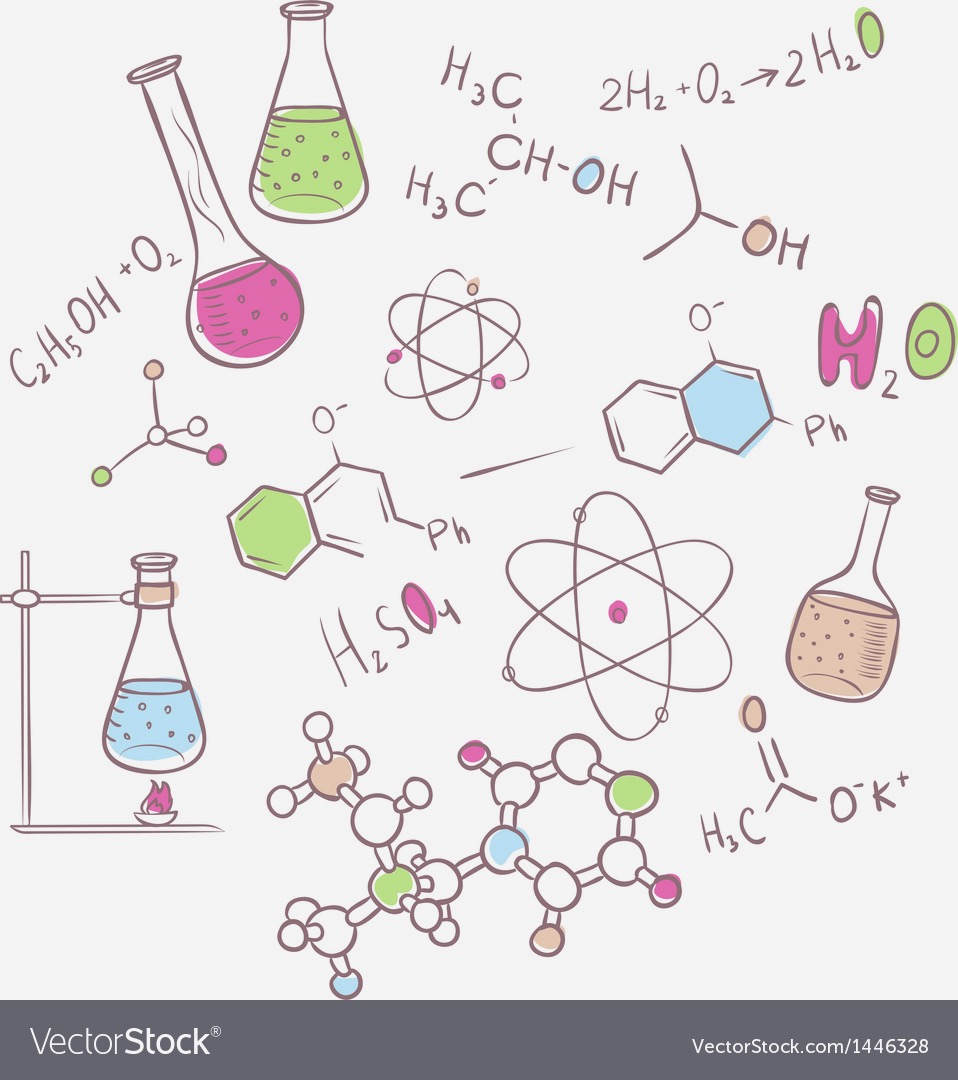 2H₂+O₂→2H₂O
H₃C
CH-OH
H₃C
OH
C₂H₅OH+O₂
H₂O
O⁻
Ph
O⁻
Ph
H₂SO₄
O
H₃C O⁻K⁺
VectorStock®
VectorStock.com/1446328